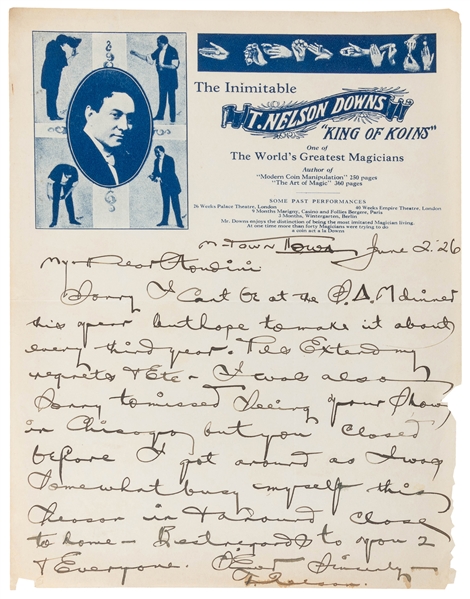 The Inimitable
T. NELSON DOWNS
"KING OF KOINS"
One of
The World's Greatest Magicians
Author of
"Modern Coin Manipulation" 250 pages
"The Art of Magic" 360 pages
SOME PAST PERFORMANCES
26 Weeks Palace Theatre, London 40 Weeks Empire Theatre, London
6 Months Marigny, Casino and Follies Bergere, Paris
3 Months, Wintergarten, Berlin
Mr. Downs enjoys the distinction of being the most imitated Magician living.
At one time more than forty Magicians were trying to do
a coin act a la Downs
M-Town Iowa June 2. '26
My Dear Houdini
Sorry I Cant be at the S.A.M dinner
this year but hope to make it about
every third year. Pls Extend my
regrets & Etc - I was also
Sorry to missed Seeing your Show
in Chicago but you Closed
before I got around as I was
Somewhat busy myself this
Season in & around Close
to home - Best regards to you 2
& Everyone. Sincerely -
T. Nelson.